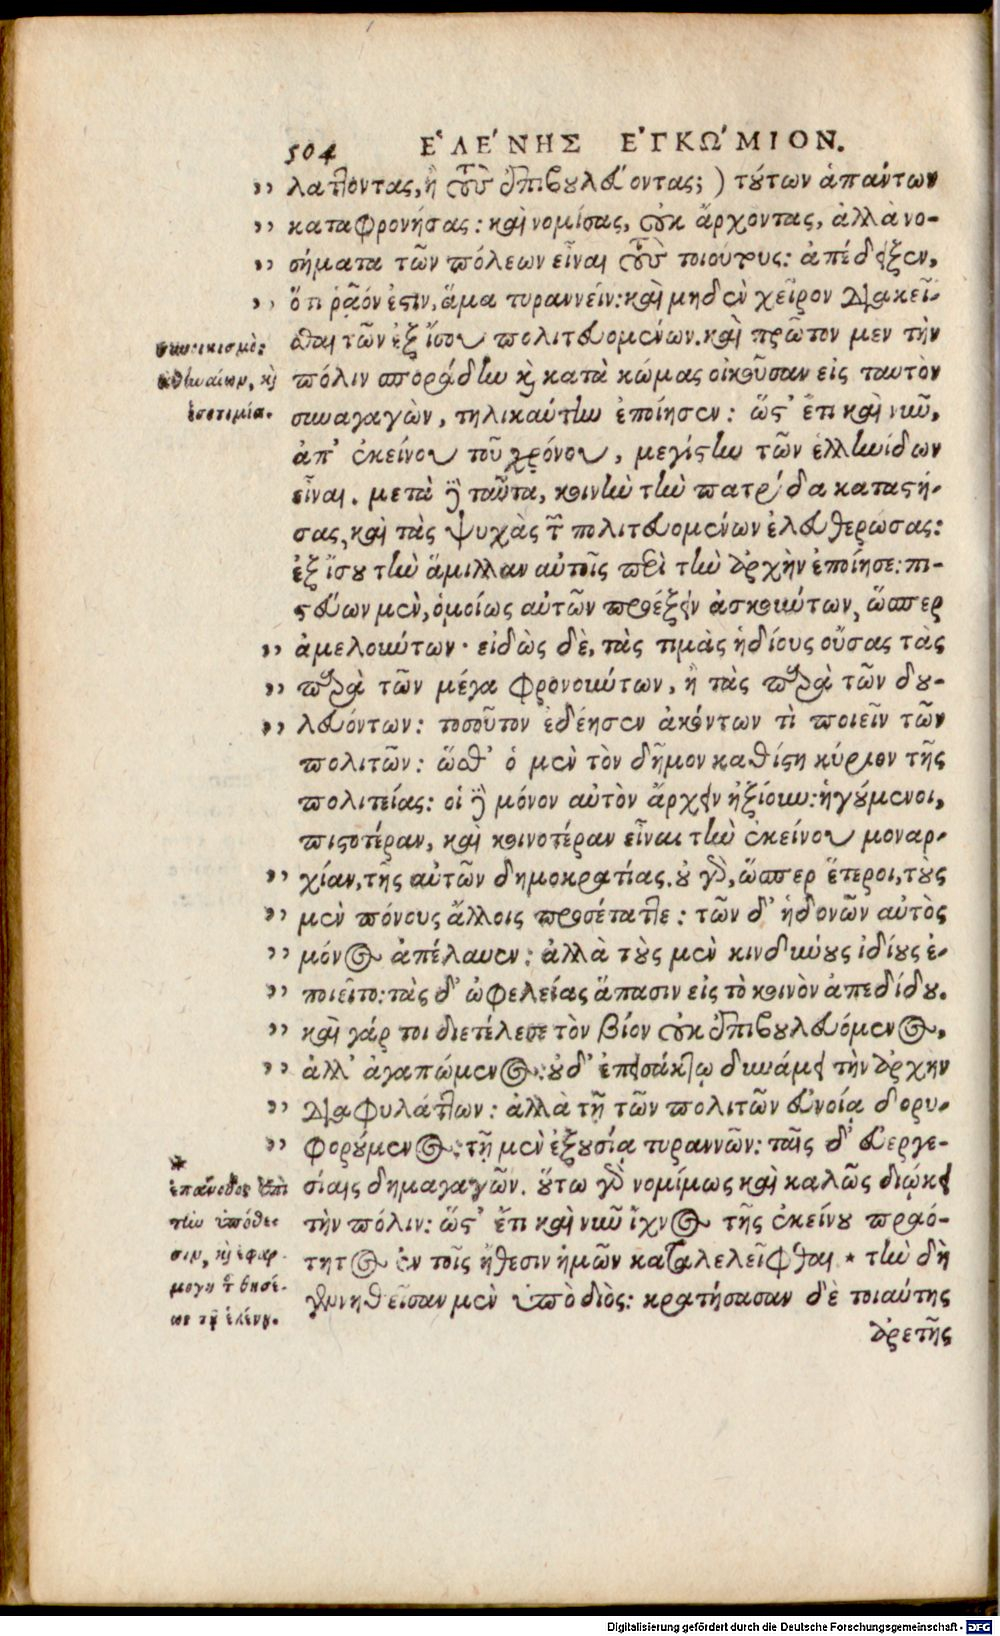 504 ἙΛΈΝΗΣ ἘΓΚΏΜΙΟΝ.
λάττοντας, ἢ τοὺς ἐπιβουλεύοντας;) τούτων ἁπάντων
καταφρονήσας: καὶ νομίσας, οὐκ ἄρχοντας, ἀλλὰ νο-
σήματα τῶν πόλεων εἶναι τοὺς τοιούτους: ἀπέδειξεν,
ὅτι ῥᾷόν ἐστιν, ἅμα τυραννεῖν: καὶ μηδὲν χεῖρον διακεῖ-
σθαι τῶν ἐξ ἴσου πολιτευομένων. καὶ πρῶτον μεν τὴν
πόλιν σποράδην καὶ κατὰ κώμας οἰκοῦσαν εἰς ταυτὸν
συναγαγὼν, τηλικαύτην ἐποίησεν: ὥστ' ἔτι καὶ νῦν,
ἀπ' ἐκείνου τοῦ χρόνου, μεγίστην τῶν ἑλληνίδων
εἶναι. μετὰ δὲ ταῦτα, κοινὴν τὴν πατρίδα καταστή-
σας, καὶ τὰς ψυχὰς τῶν πολιτευομένων ἐλευθερώσας:
ἐξ ἴσου τὴν ἅμιλλαν αὐτοῖς περὶ τὴν ἀρχὴν ἐποίησε: πι-
στεύων μὲν, ὁμοίως αὐτῶν προέξειν ἀσκούντων, ὥσπερ
ἀμελούντων· εἰδὼς δὲ, τὰς τιμὰς ἡδίους οὔσας τὰς
παρὰ τῶν μέγα φρονούντων, ἢ τὰς παρὰ τῶν δου-
λευόντων: τοσοῦτον ἐδέησεν ἀκόντων τὶ ποιεῖν τῶν
πολιτῶν: ὥσθ' ὁ μὲν τὸν δῆμον καθίστη κύριον τῆς
πολιτείας: οἱ δὲ μόνον αὐτὸν ἄρχειν ἠξίουν: ἡγούμενοι,
πιστοτέραν, καὶ κοινοτέραν εἶναι τὴν ἐκείνου μοναρ-
χίαν, τῆς αὐτῶν δημοκρατίας. οὐ γὰρ, ὥσπερ ἕτεροι, τοὺς
μὲν πόνους ἄλλοις προσέταττε: τῶν δ' ἡδονῶν αὐτὸς
μόνος ἀπέλαυεν: ἀλλὰ τοὺς μὲν κινδύνους ἰδίους ἐ-
ποιεῖτο: τὰς δ' ὠφελείας ἅπασιν εἰς τὸ κοινὸν ἀπεδίδου.
καὶ γάρ τοι διετέλεσε τὸν βίον οὐκ ἐπιβουλευόμενος,
ἀλλ' ἀγαπώμενος: οὐδ' ἐπεισάκτῳ δυνάμει τὴν ἀρχὴν
διαφυλάττων: ἀλλὰ τῇ τῶν πολιτῶν εὐνοίᾳ δορυ-
φορούμενος: τῇ μὲν ἐξουσίᾳ τυραννῶν: ταῖς δ' εὐεργε-
σίαις δημαγαγῶν. οὕτω γὰρ νομίμως καὶ καλῶς διῴκει
τὴν πόλιν: ὥστ' ἔτι καὶ νῦν ἴχνος τῆς ἐκείνου πραό-
τητος ἐν τοῖς ἤθεσιν ἡμῶν καταλελεῖφθαι * τὴν δὴ
γεννηθεῖσαν μὲν ὑπὸ διὸς: κρατήσασαν δὲ τοιαύτης
ἀρετῆς
συνοικισμὸς
ἀθηναίων, καὶ
ἰσοτιμία.
*
ἐπάνοδος ἐπὶ
τὴν ὑπόθε-
σιν, καὶ ἐφαρ-
μογὴ τοῦ θησέ-
ως τῇ ἑλένῃ.
Digitalisierung gefördert durch die Deutsche Forschungsgemeinschaft - DFG